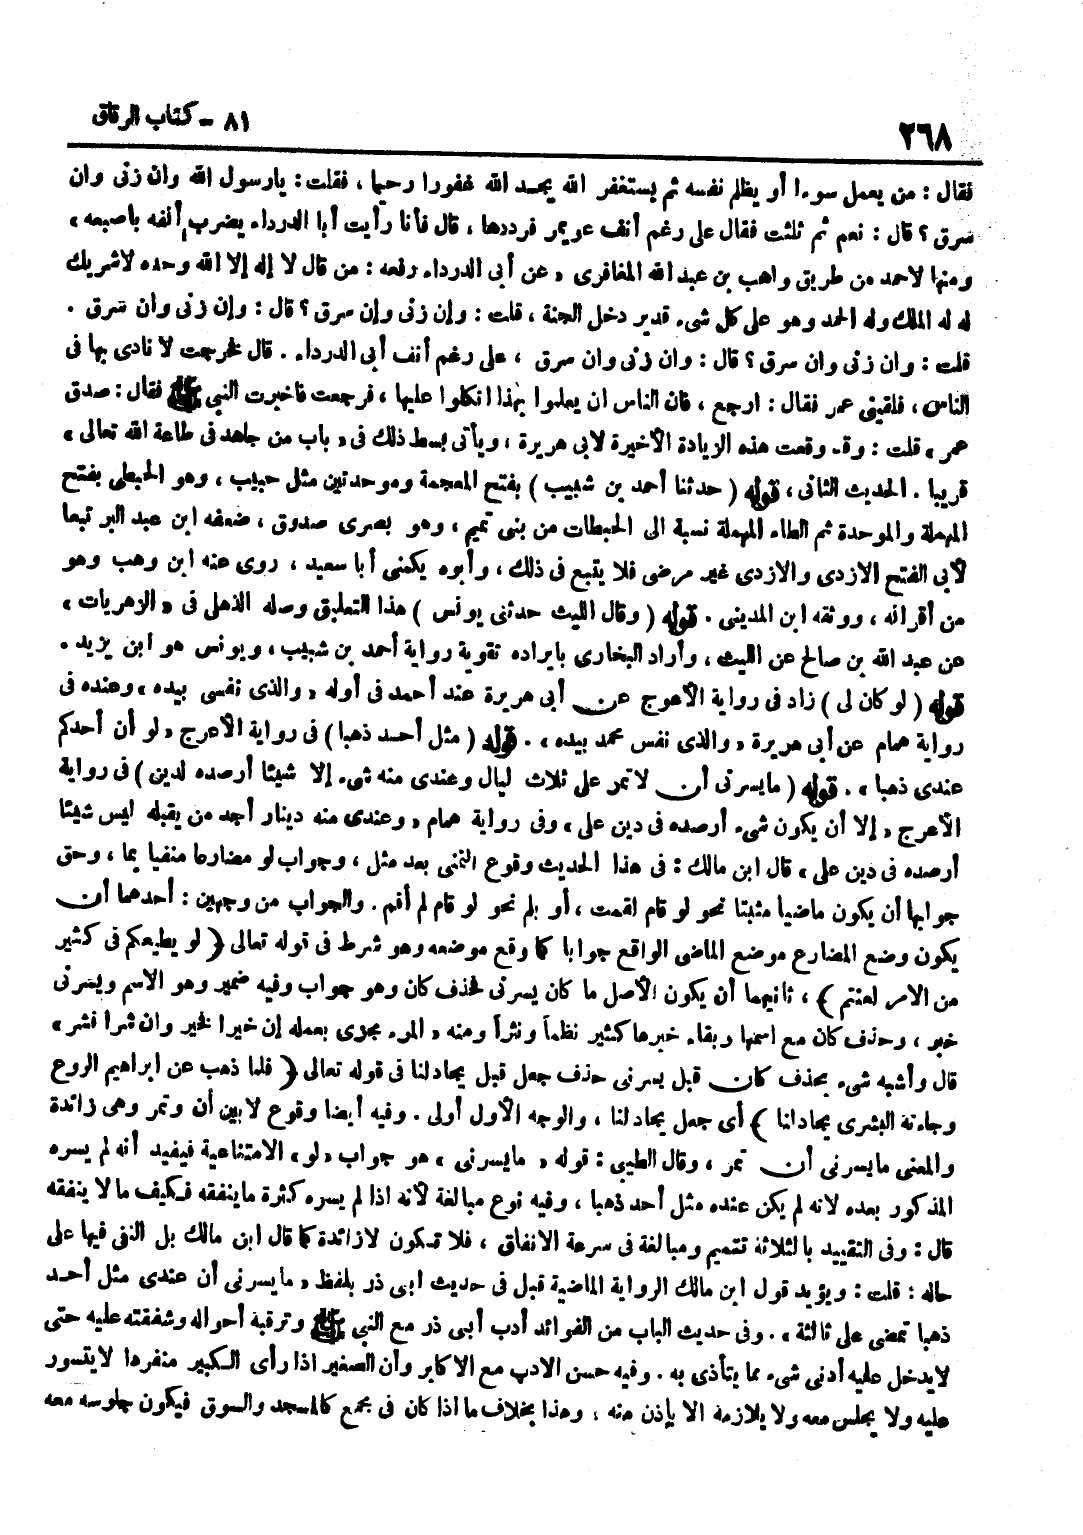 ٢٦٨
٨١ - كتاب الرقاق
فقال : من يعمل سوءا أو يظلم نفسه ثم يستغفر الله يجد الله غفورا رحيما ، فقلت : يارسول الله وان زنى وان
سرق ؟ قال : نعم ثم ثلثت فقال على رغم أنف عويمر فرددها ، قال فأنا رأيت أبا الدرداء يضرب أنفه بأصبعه »
ومنها لاحمد من طريق واهب بن عبد الله المغافرى « عن أبى الدرداء رفعه : من قال لا إله إلا الله وحده لاشريك
له له الملك وله الحمد وهو على كل شىء قدير دخل الجنة ، قلت : وإن زنى وإن سرق ؟ قال : وإن زنى وان سرق .
قلت : وان زنى وان سرق ؟ قال : وان زنى وان سرق ، على رغم أنف أبى الدرداء . قال فخرجت لا نادى بها فى
الناس ، فلقينى عمر فقال : ارجع ، فان الناس ان يعلموا بهذا اتكلوا عليها ، فرجعت فاخبرت النبى ﷺ فقال : صدق
عمر » قلت : وقد وقعت هذه الزيادة الأخيرة لابى هريرة ، ويأتى بسط ذلك فى « باب من جاهد فى طاعة الله تعالى »
قريبا . الحديث الثانى ، قوله ( حدثنا أحمد بن شبيب ) بفتح المعجمة وموحدتين مثل حبيب ، وهو الحبطى بفتح
المهملة والموحدة ثم الطاء المهملة نسبة الى الحبطات من بنى تميم ، وهو بصرى صدوق ، ضعفه ابن عبد البر تبعا
لأبى الفتح الازدى والازدى غير مرضى فلا يتبع فى ذلك ، وأبوه يكنى أبا سعيد ، روى عنه ابن وهب وهو
من أقرانه ، ووثقه ابن المدينى . قوله ( وقال الليث حدثنى يونس ) هذا التعليق وصله الذهلى فى « الزهريات »
عن عبد الله بن صالح عن الليث ، وأراد البخارى بايراده تقوية رواية أحمد بن شبيب ، ويونس هو ابن يزيد .
قوله ( لو كان لى ) زاد فى رواية الأعرج عن أبى هريرة عند أحمد فى أوله « والذى نفسى بيده » وعنده فى
رواية همام عن أبى هريرة « والذى نفس محمد بيده » . قوله ( مثل أحد ذهبا ) فى رواية الأعرج « لو أن أحدكم
عندى ذهبا » . قوله ( مايسرنى أن لا تمر على ثلاث ليال وعندى منه شىء إلا شيئا أرصده لدين ) فى رواية
الأعرج « إلا أن يكون شىء أرصده فى دين على » وفى رواية همام « وعندى منه دينار أجد من يقبله ليس شيئا
أرصده فى دين على » قال ابن مالك : فى هذا الحديث وقوع التمنى بعد مثل ، وجواب لو مضارعا منفيا بما ، وحق
جوابها أن يكون ماضيا مثبتا نحو لو قام لقمت ، أو بلم نحو لو قام لم أقم . والجواب من وجهين : أحدهما أن
يكون وضع المضارع موضع الماضى الواقع جوابا كما وقع موضعه وهو شرط فى قوله تعالى ﴿ لو يطيعكم فى كثير
من الامر لعنتم ﴾ ، ثانيهما أن يكون الأصل ما كان يسرنى فحذف كان وهو جواب وفيه ضمير وهو الاسم ويسرنى
خبر ، وحذف كان مع اسمها وبقاء خبرها كثير نظما ونثرا ومنه « المرء مجزى بعمله إن خيرا فخير وان شرا فشر »
قال وأشبه شىء بحذف كان قبل يسرنى حذف جعل قبل يجادلنا فى قوله تعالى ﴿ فلما ذهب عن ابراهيم الروع
وجاءته البشرى يجادلنا ﴾ أى جعل يجادلنا ، والوجه الأول أولى . وفيه أيضا وقوع لا بين أن وتمر وهى زائدة
والمعنى مايسرنى أن تمر ، وقال الطيبى : قوله « مايسرنى » هو جواب « لو » الامتناعية فيفيد أنه لم يسره
المذكور بعده لانه لم يكن عنده مثل أحد ذهبا ، وفيه نوع مبالغة لأنه اذا لم يسره كثرة ماينفقه فكيف مالا ينفقه
قال : وفى التقييد بالثلاثة تتميم ومبالغة فى سرعة الانفاق ، فلا تكون لا زائدة كما قال ابن مالك بل النفى فيها على
حاله : قلت : ويؤيد قول ابن مالك الرواية الماضية قبل فى حديث ابى ذر بلفظ « مايسرنى أن عندى مثل أحد
ذهبا تمضى على ثالثة » . وفى حديث الباب من الفوائد أدب أبى ذر مع النبى ﷺ وترقبه أحواله وشفقته عليه حتى
لايدخل عليه أدنى شىء مما يتأذى به . وفيه حسن الادب مع الاكابر وأن الصغير اذا رأى الكبير منفردا لايتسور
عليه ولا يجلس معه ولا يلازمه الا بإذن منه ، وهذا بخلاف ما اذا كان فى مجمع كالمسجد والسوق فيكون جلوسه معه